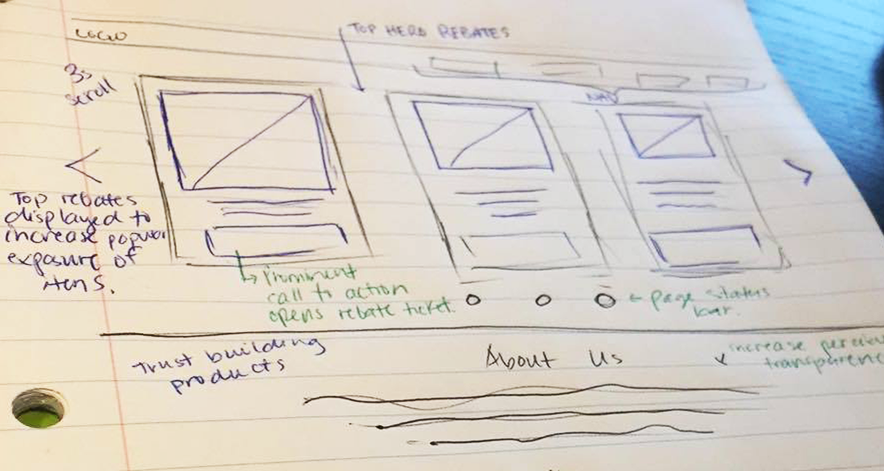 LOGO
TOP HERO REBATES
NAV
3s
scroll
Top rebates
displayed to
increase popular
exposure of
items.
Prominent
call to action
opens rebate ticket.
page status
bar.
Trust building
products
About Us
increase perceived
transparency